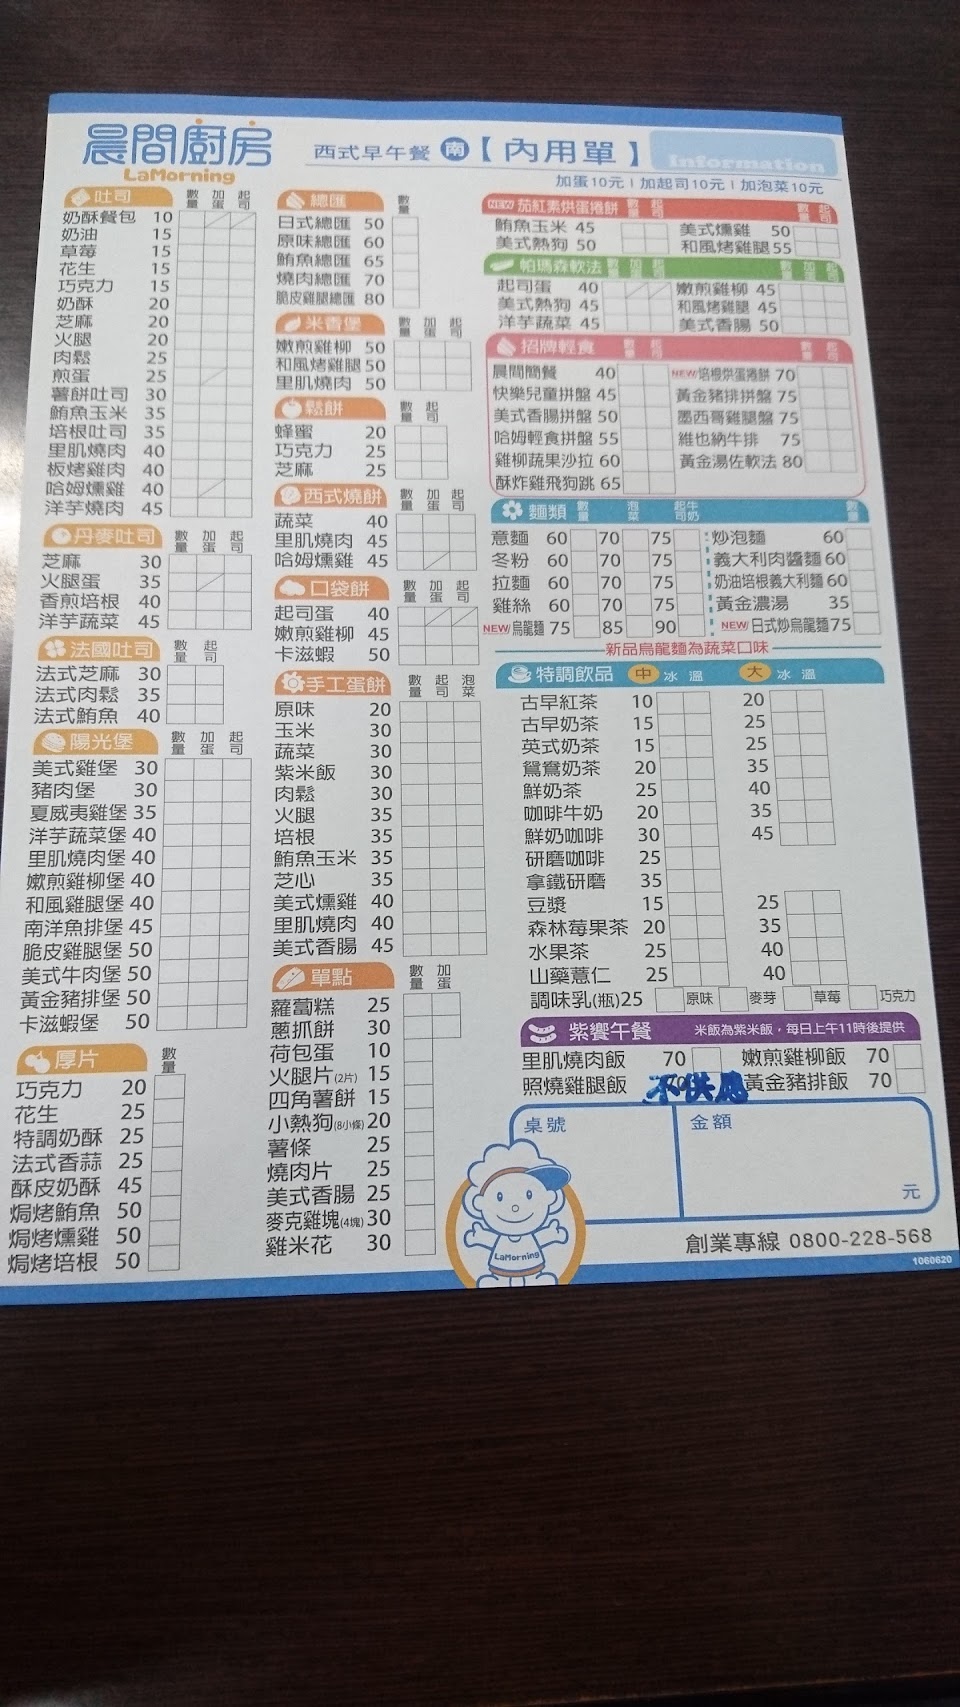 晨間廚房
LaMorning
西式早午餐 南【內用單】
Information
加蛋10元 | 加起司10元 | 加泡菜10元
吐司 數量 加蛋 起司
奶酥餐包 10
奶油 15
草莓 15
花生 15
巧克力 15
奶酥 20
芝麻 20
火腿 20
肉鬆 25
煎蛋 25
薯餅吐司 30
鮪魚玉米 35
培根吐司 35
里肌燒肉 40
板烤雞肉 40
哈姆燻雞 40
洋芋燒肉 45
丹麥吐司 數量 加蛋 起司
芝麻 30
火腿蛋 35
香煎培根 40
洋芋蔬菜 45
法國吐司 數量 起司
法式芝麻 30
法式肉鬆 35
法式鮪魚 40
陽光堡 數量 加蛋 起司
美式雞堡 30
豬肉堡 30
夏威夷雞堡 35
洋芋蔬菜堡 40
里肌燒肉堡 40
嫩煎雞柳堡 40
和風雞腿堡 40
南洋魚排堡 45
脆皮雞腿堡 50
美式牛肉堡 50
黃金豬排堡 50
卡滋蝦堡 50
厚片 數量
巧克力 20
花生 25
特調奶酥 25
法式香蒜 25
酥皮奶酥 45
焗烤鮪魚 50
焗烤燻雞 50
焗烤培根 50
總匯 數量
日式總匯 50
原味總匯 60
鮪魚總匯 65
燒肉總匯 70
脆皮雞腿總匯 80
米香堡 數量 加蛋 起司
嫩煎雞柳 50
和風烤雞腿 50
里肌燒肉 50
鬆餅 數量 起司
蜂蜜 20
巧克力 25
芝麻 25
西式燒餅 數量 加蛋 起司
蔬菜 40
里肌燒肉 45
哈姆燻雞 45
口袋餅 數量 加蛋 起司
起司蛋 40
嫩煎雞柳 45
卡滋蝦 50
手工蛋餅 數量 起司 泡菜
原味 20
玉米 30
蔬菜 30
紫米飯 30
肉鬆 30
火腿 35
培根 35
鮪魚玉米 35
芝心 35
美式燻雞 40
里肌燒肉 40
美式香腸 45
單點 數量 加蛋
蘿蔔糕 25
蔥抓餅 30
荷包蛋 10
火腿片(2片) 15
四角薯餅 15
小熱狗(8小條) 20
薯條 25
燒肉片 25
美式香腸 25
麥克雞塊(4塊) 30
雞米花 30
NEW 茄紅素烘蛋捲餅 數量 起司 數量 起司
鮪魚玉米 45 美式燻雞 50
美式熱狗 50 和風烤雞腿 55
帕瑪森軟法 數量 加蛋 起司 數量 加蛋 起司
起司蛋 40 嫩煎雞柳 45
美式熱狗 45 和風烤雞腿 45
洋芋蔬菜 45 美式香腸 50
招牌輕食 數量 起司 數量 起司
晨間簡餐 40 NEW 培根烘蛋捲餅 70
快樂兒童拼盤 45 黃金豬排拼盤 75
美式香腸拼盤 50 墨西哥雞腿盤 75
哈姆輕食拼盤 55 維也納牛排 75
雞柳蔬果沙拉 60 黃金湯佐軟法 80
酥炸雞飛狗跳 65
麵類 數量 泡菜 起司牛奶 數量
意麵 60 70 75 炒泡麵 60
冬粉 60 70 75 義大利肉醬麵 60
拉麵 60 70 75 奶油培根義大利麵 60
雞絲 60 70 75 黃金濃湯 35
NEW 烏龍麵 75 85 90 NEW 日式炒烏龍麵 75
新品烏龍麵為蔬菜口味
特調飲品 中 冰 溫 大 冰 溫
古早紅茶 10 20
古早奶茶 15 25
英式奶茶 15 25
鴛鴦奶茶 20 35
鮮奶茶 25 40
咖啡牛奶 20 35
鮮奶咖啡 30 45
研磨咖啡 25
拿鐵研磨 35
豆漿 15 25
森林莓果茶 20 35
水果茶 25 40
山藥薏仁 25 40
調味乳(瓶) 25 原味 麥芽 草莓 巧克力
紫饗午餐 米飯為紫米飯，每日上午11時後提供
里肌燒肉飯 70 嫩煎雞柳飯 70
照燒雞腿飯 70 黃金豬排飯 70
不供應
桌號 金額
元
LaMorning
創業專線 0800-228-568
1060620